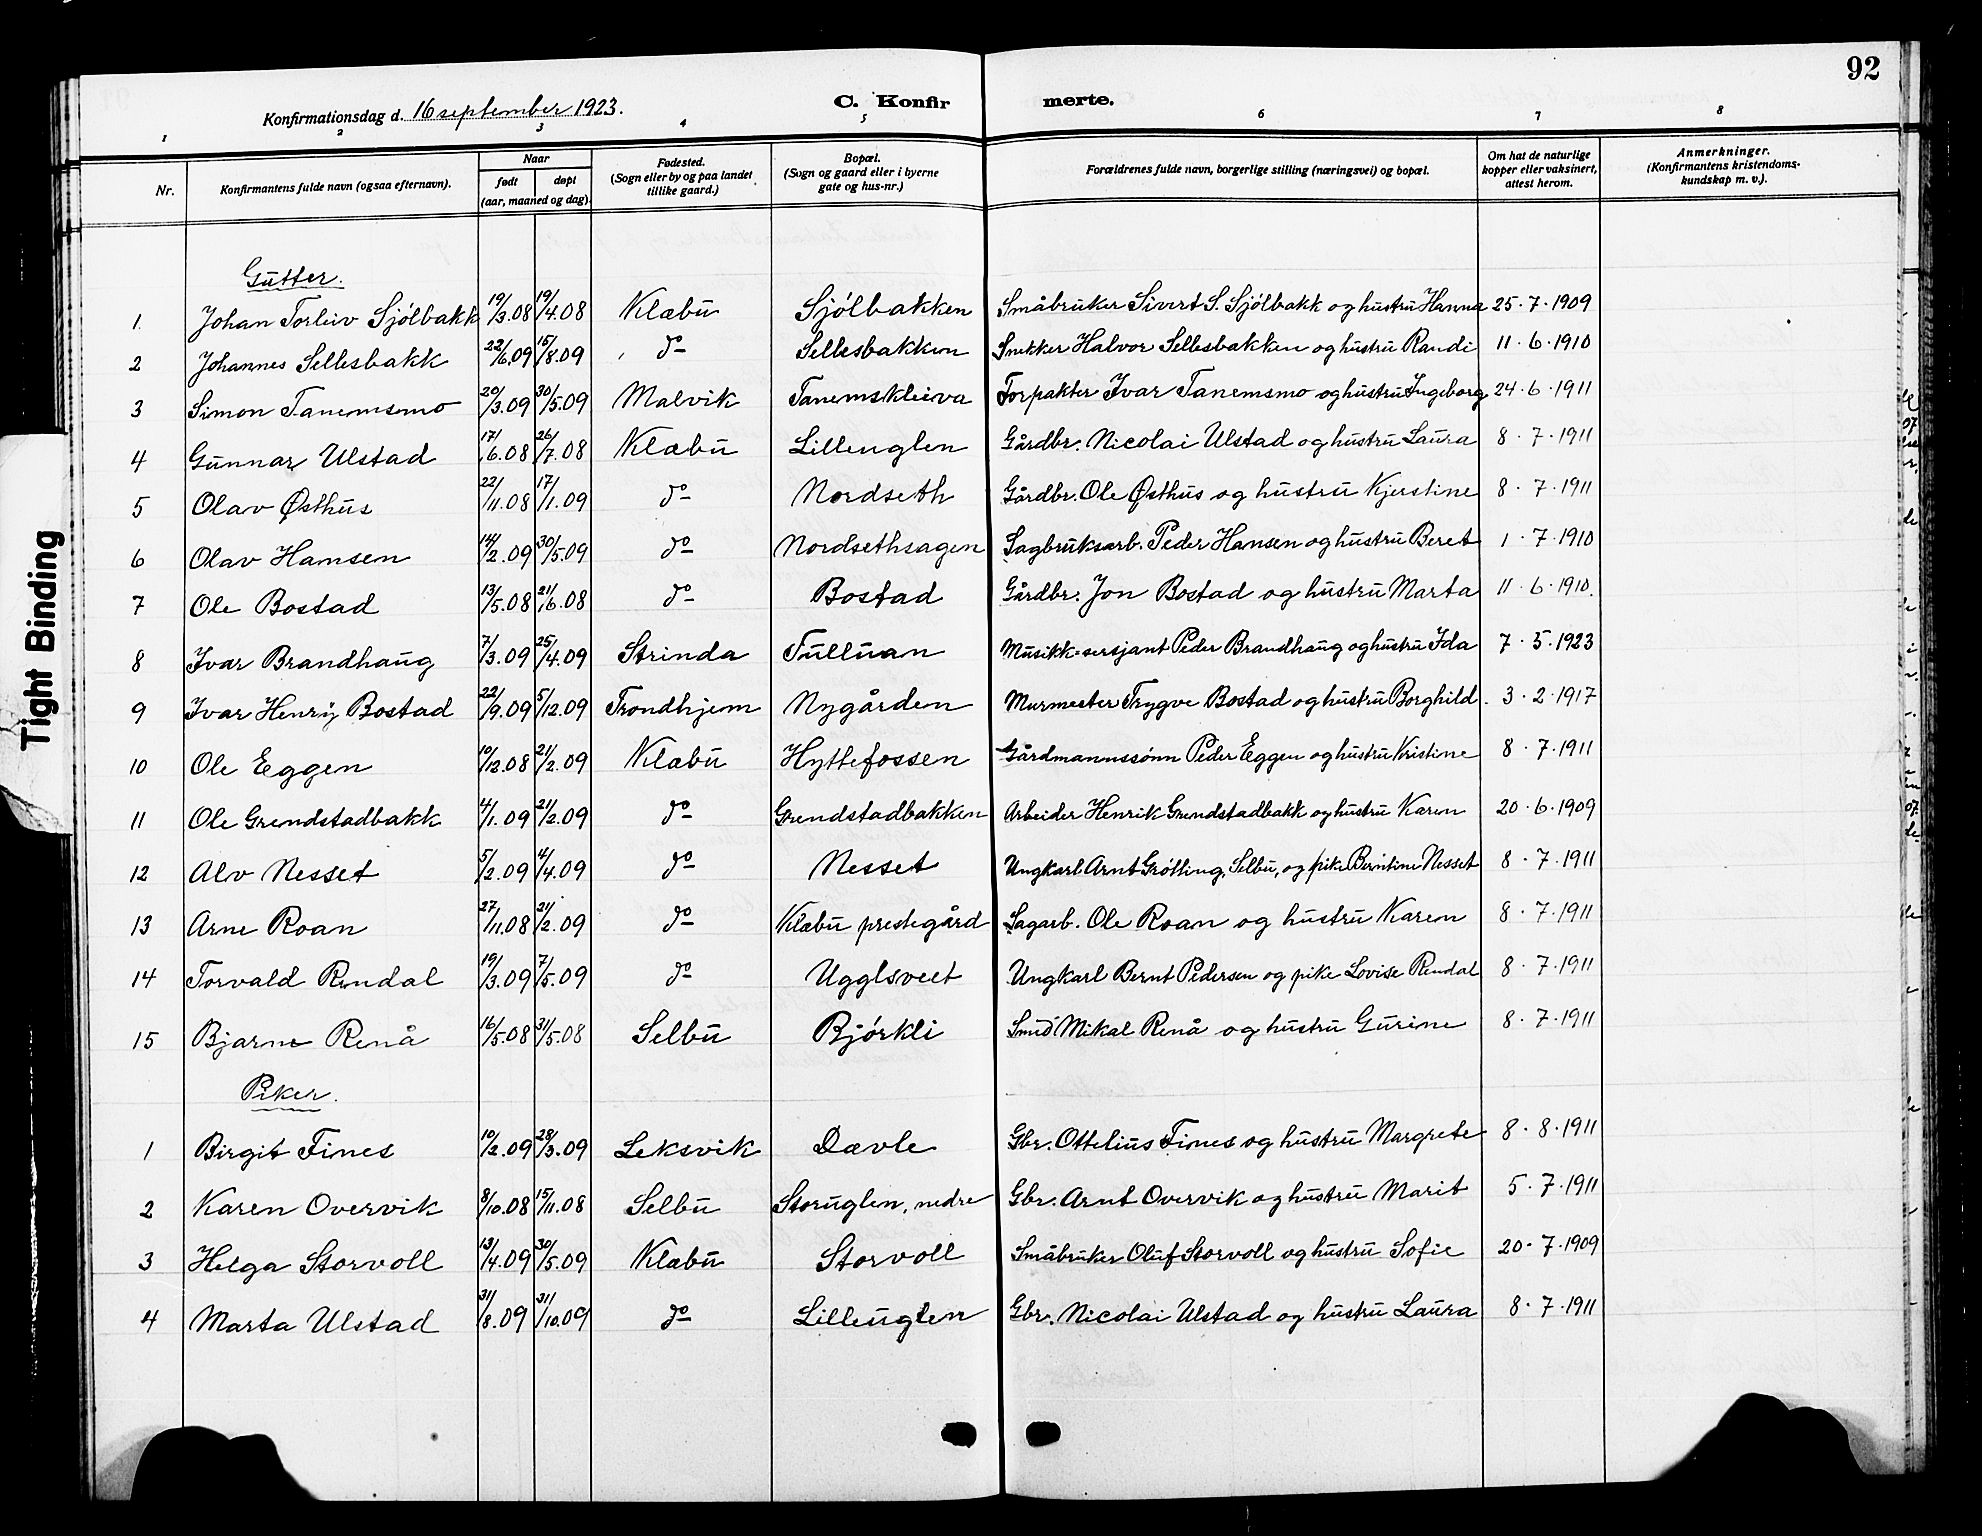 92
Konfirmationsdag d. 16 september 1923.
C. Konfir merte.
1 2 3 4 5 6 7 8
Nr. Konfirmantens fulde navn (ogsaa efternavn). Naar født døpt (aar, maaned og dag) Fødested. (Sogn eller by og paa landet tillike gaard.) Bopæl. (Sogn og gaard eller i byerne gate og hus-nr.) Forældrenes fulde navn, borgerlige stilling (næringsvei) og bopæl. Om hat de naturlige kopper eller vaksinert, attest herom. Anmerkninger. (Konfirmantens kristendoms-kundskap m. v.).
Gutter.
1. Johan Torleiv Sjölbakk 19/3.08 19/4.08 Klæbu Sjölbakken Småbruker Sivert S. Sjölbakk og hustru Hanna 25.7.1909
2 Johannes Sellesbakk 22/6.09 15/8.09 do Sellesbakken Snekker Halvor Sellesbakken og hustru Randi 11.6.1910
3 Simon Tanemsmo 20/3.09 30/5.09 Malvik Tanemskleiva Forpakter Ivar Tanemsmo og hustru Ingeborg 24.6.1911
4 Gunnar Ulstad 17/6.08 26/7.08 Klæbu Lilleuglen Gårdbr. Nicolai Ulstad og hustru Laura 8.7.1911
5 Olav Østhus 22/11.08 17/1.09 do Nordseth Gårdbr. Ole Østhus og hustru Kjerstine 8.7.1911
6 Olav Hansen 14/2.09 30/5.09 do Nordsethsagen Sagbruksarb. Peder Hansen og hustru Beret 1.7.1910
7 Ole Bostad 13/5.08 21/6.08 do Bostad Gårdbr. Jon Bostad og hustru Marta 11.6.1910.
8 Ivar Brandhaug 7/3.09 25/4.09 Strinda Tulluan Musikk-sersjant Peder Brandhaug og hustru Ida 7.5.1923
9 Ivar Henry Bostad 22/9.09 5/12.09 Trondhjem Nygården Murmester Trygve Bostad og hustru Borghild. 3.2.1917
10 Ole Eggen 10/12.08 21/2.09 Klæbu Hyttefossen Gårdmannssönn Peder Eggen og hustru Kristine 8.7.1911
11 Ole Grendstadbakk 4/1.09 21/2.09 do Grendstadbakken Arbeider Henrik Grendstadbakk og hustru Karen 20.6.1909
12 Alv Nesset 5/2.09 4/4.09 do Nesset Ungkarl Arnt Grötting, Selbu, og pike Berntine Nesset 8.7.1911
13 Arne Roan 27/11.08 21/2.09 do Klæbu prestegård Sagarb. Ole Roan og hustru Karen 8.7.1911
14 Torvald Rendal 19/3.09 7/5.09 do Ugglsveet Ungkarl Bernt Pedersen og pike Lovise Rendal 8.7.1911
15 Bjarne Renå 16/5.08 31/5.08 Selbu Bjórkli Smed Mikal Renå og hustru Gurine 8.7.1911
Piker.
1 Birgit Fines 10/2.09 28/3.09 Leksvik Dævle Gbr. Ottelius Fines og hustru Margrete 8.8.1911
2 Karen Overvik 8/10.08 15/11.08 Selbu Storuglen, nedre Gbr. Arnt Overvik og hustru Marit 5.7.1911
3 Helga Storvoll 13/4.09 30/5.09 Klæbu Storvoll Småbruker Oluf Storvoll og hustru Sofie 20.7.1909
4 Marta Ulstad 31/8.09 31/10.09 do Lilleuglen Gbr. Nicolai Ulstad og hustru Laura 8.7.1911
Tight Binding